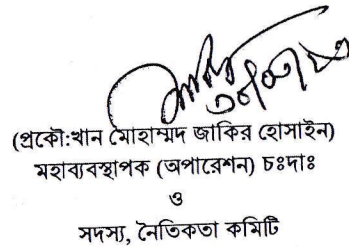 (প্রকৌ:খান মোহাম্মদ জাকির হোসাইন)
মহাব্যবস্থাপক (অপারেশন) চঃদাঃ
ও
সদস্য, নৈতিকতা কমিটি